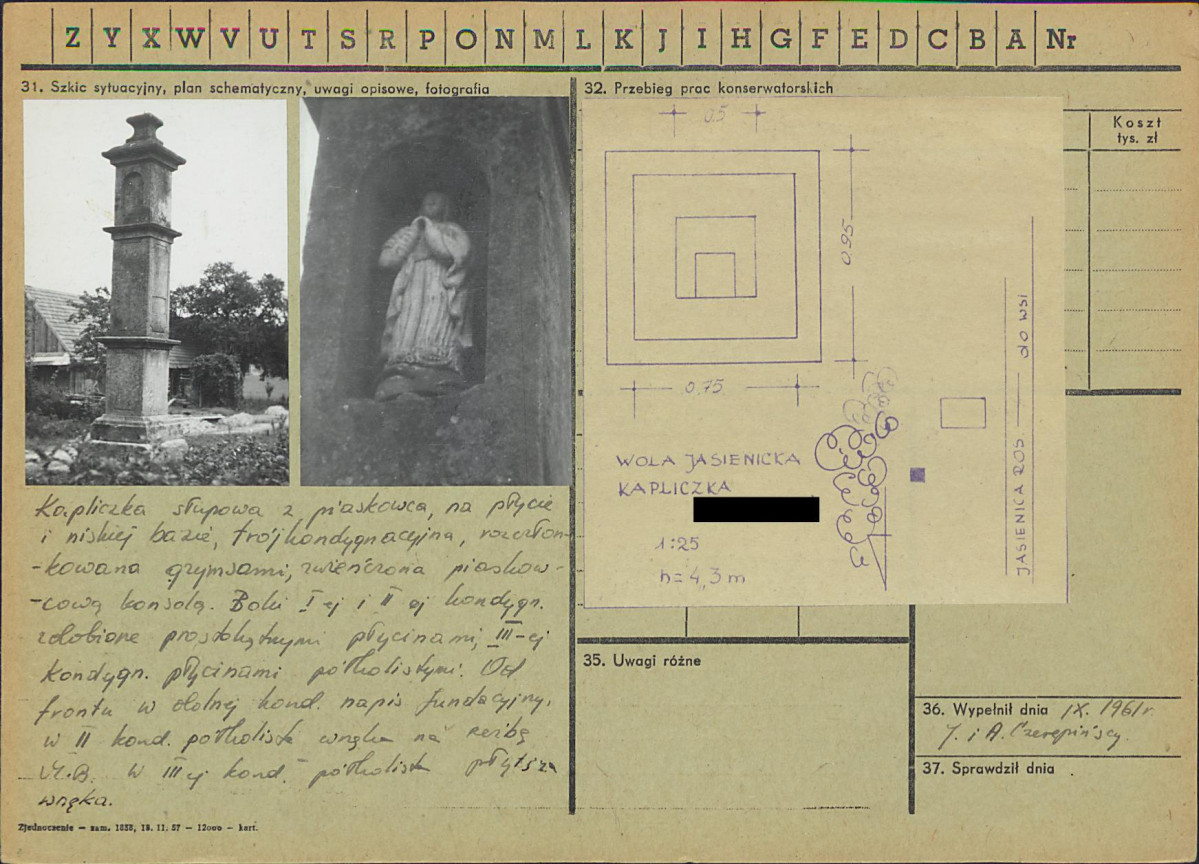 Z Y X W V U T S R P O N M L K J I H G F E D C B A Nr
31. Szkic sytuacyjny, plan schematyczny, uwagi opisowe, fotografia
Kapliczka słupowa z piaskowca, na płycie
i niskiej bazie, trójkondygnacyjna, rozczłon-
-kowana gzymsami, zwieńczona piaskow-
-cową konsolą. Boki I ej i II ej kondygn.
zdobione prostokątnymi płycinami, III-ej
kondygn. płycinami półkolistymi. Od
frontu w dolnej kond. napis fundacyjny,
w II kond. półkolista wnęka na rzeźbę
M.B. W III ej kond. półkolista płytsza
wnęka.
Zjednoczenie — zam. 1858, 18. 11. 57 — 12000 — kart.
32. Przebieg prac konserwatorskich
Koszt
tys. zł
0,5
0,95
0,75
WOLA JASIENICKA
KAPLICZKA
1:25
h = 4,3 m
JASIENICA ROS — do wsi
35. Uwagi różne
36. Wypełnił dnia IX. 1961 r
J. i A. Czerepińscy.
37. Sprawdził dnia